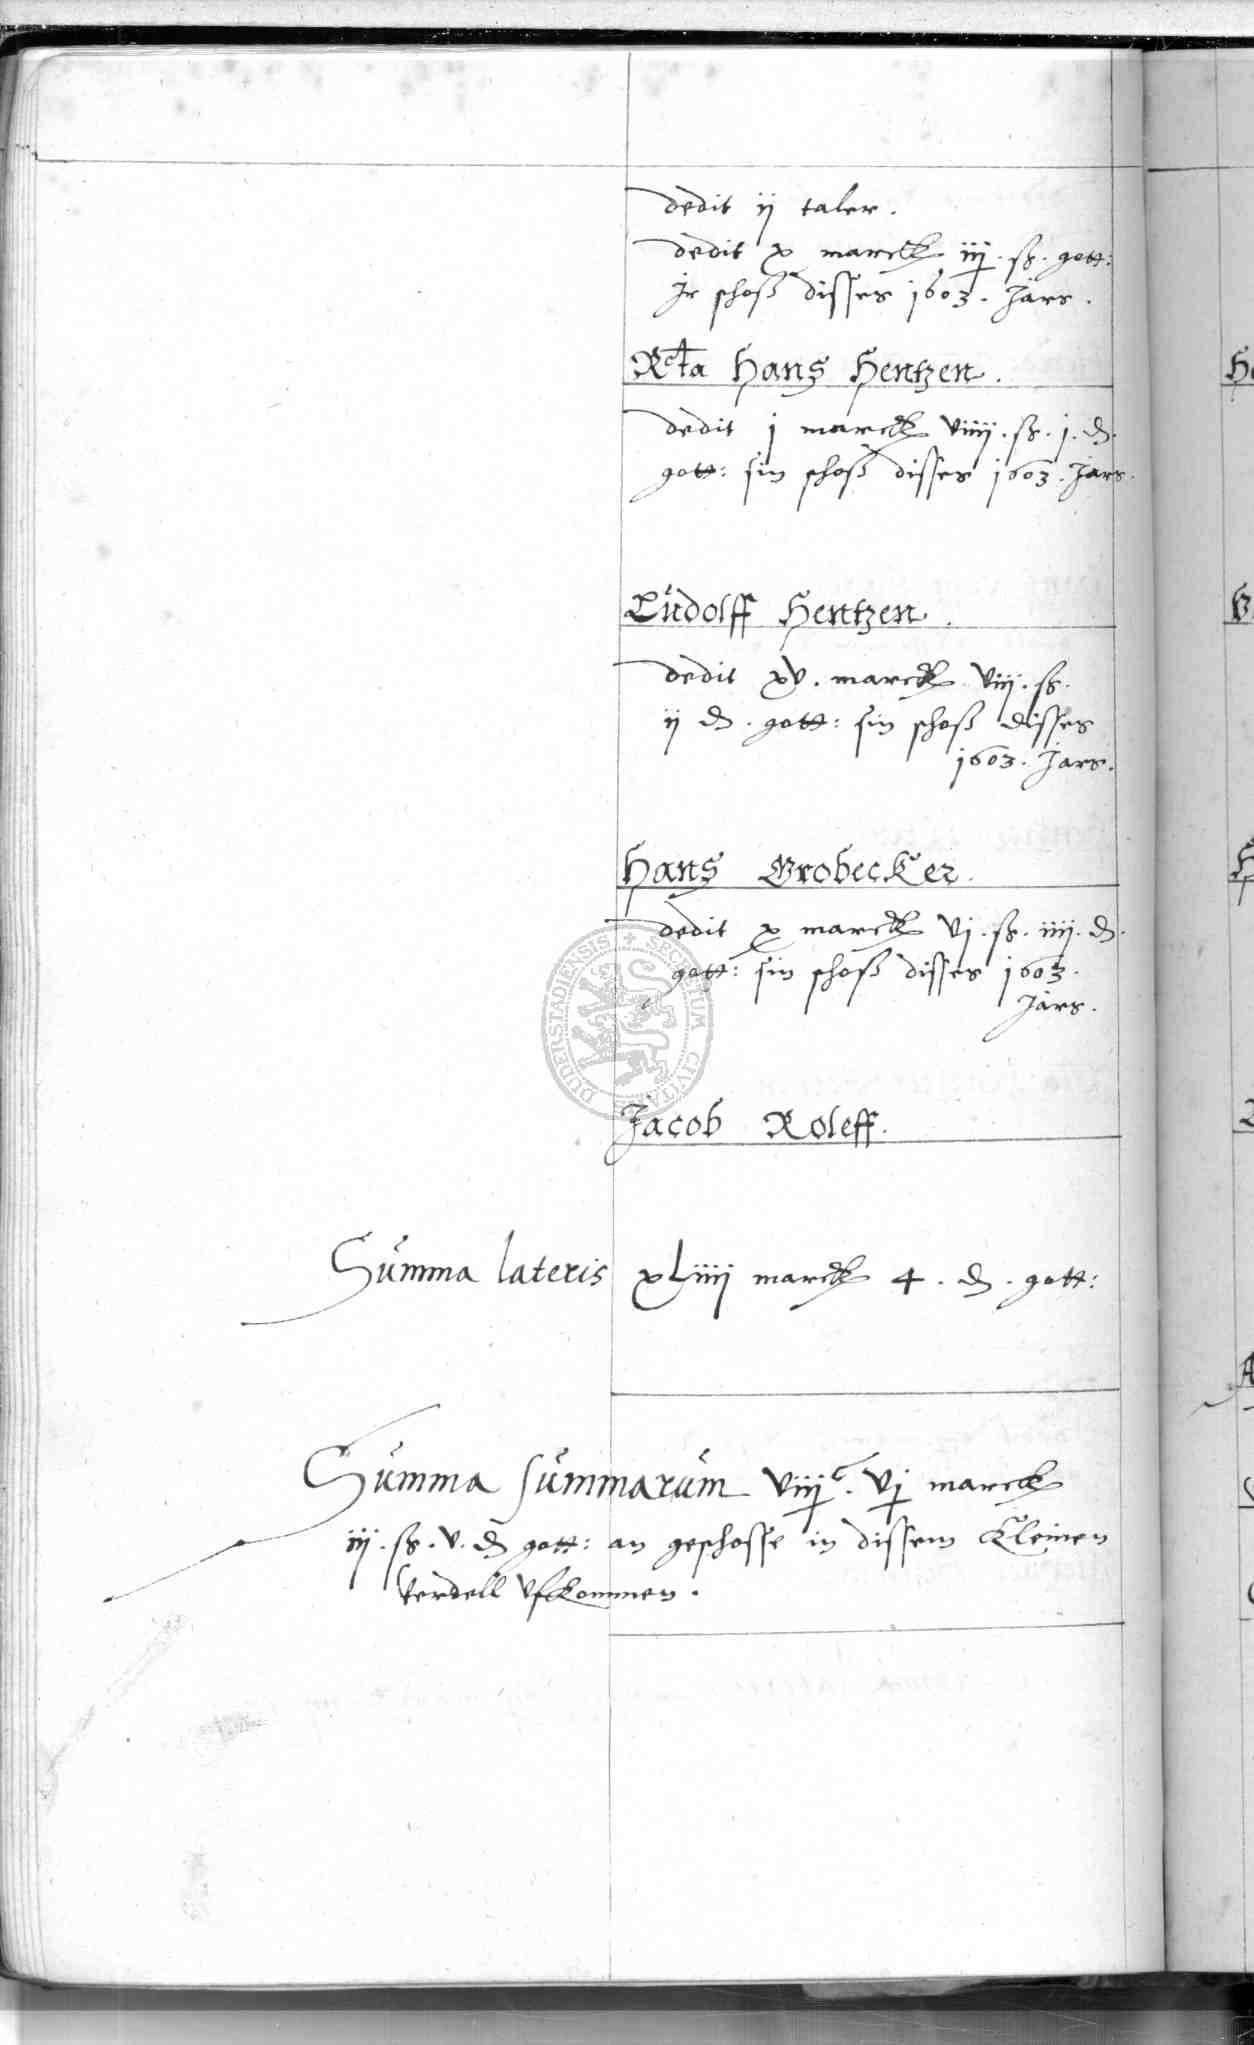 dedit ij taler.
dedit x marck iij. ß. gott:
Jr schoß disses 1603. Jars.
Rcta Hans Hentzen.
dedit j marck viiij. ß. j. d.
gott: sin schoß disses 1603. Jars.
Lüdolff Hentzen.
dedit xv. marck viij. ß.
ij d. gott: sin schoß disses
1603. Jars.
Hans Brobecker.
dedit x marck vj. ß. iiij. d.
gott: sin schoß disses 1603.
Jars.
Jacob Roleff.
Summa lateris xLiiij marck 4. d. gott:
Summa summarum viiijc. vj marck
iij. ß. v. d gott: an geschosse in dissem Kleinen
verdell vfkommen.
SECRETUM CIVITATIS DUDERSTADIENSIS